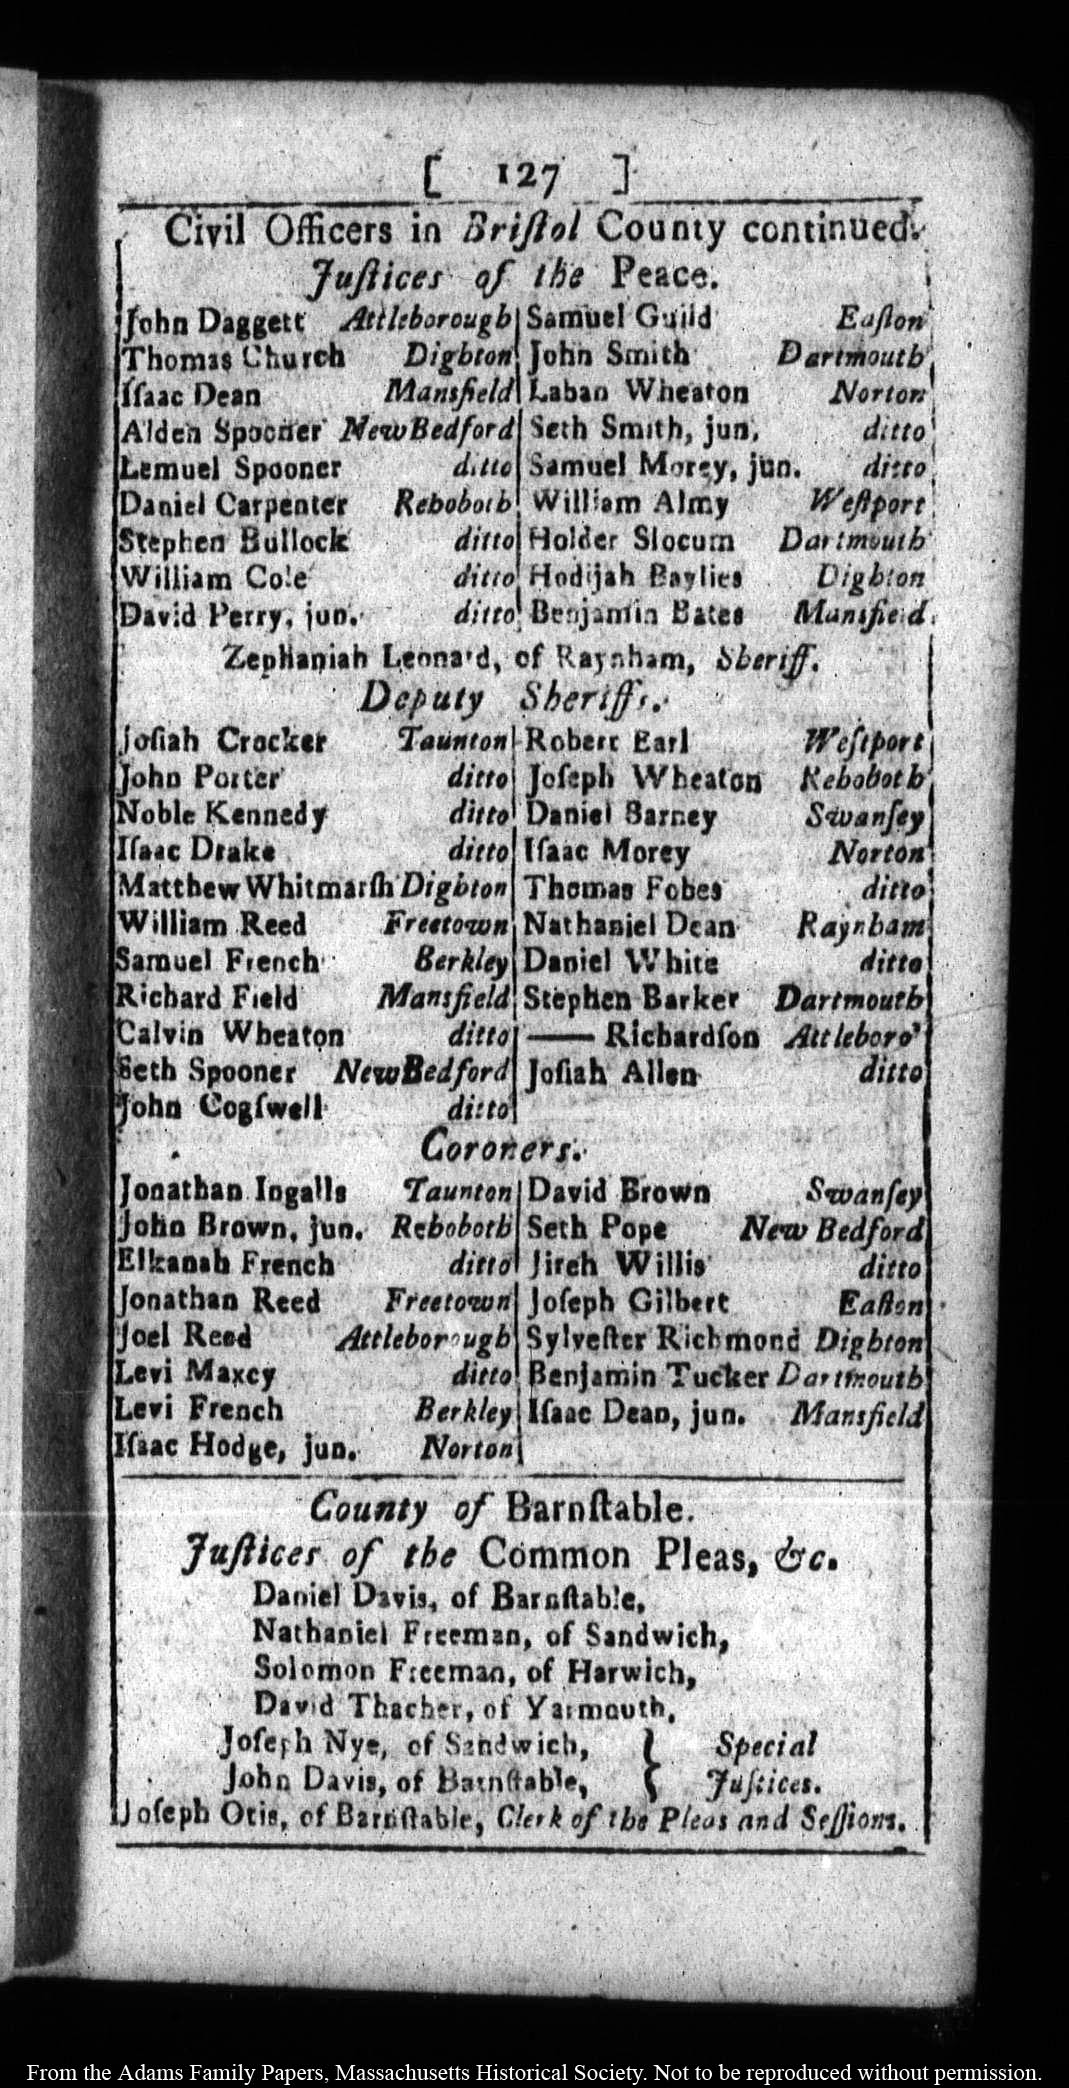 [ 127 ]
Civil Officers in Briſtol County continued.
Juſtices of the Peace.
John Daggett Attleborough
Thomas Church Dighton
Iſaac Dean Mansfield
Alden Spooner New Bedford
Lemuel Spooner ditto
Daniel Carpenter Rehoboth
Stephen Bullock ditto
William Cole ditto
David Perry, jun. ditto
Samuel Guild Eaſton
John Smith Dartmouth
Laban Wheaton Norton
Seth Smith, jun. ditto
Samuel Morey, jun. ditto
William Almy Weſtport
Holder Slocum Dartmouth
Hodijah Baylies Dighton
Benjamin Bates Mansfield
Zephaniah Leonard, of Raynham, Sheriff.
Deputy Sheriffs.
Joſiah Crocker Taunton
John Porter ditto
Noble Kennedy ditto
Iſaac Drake ditto
Matthew Whitmarſh Dighton
William Reed Freetown
Samuel French Berkley
Richard Field Mansfield
Calvin Wheaton ditto
Seth Spooner New Bedford
John Cogſwell ditto
Robert Earl Weſtport
Joſeph Wheaton Rehoboth
Daniel Barney Swanſey
Iſaac Morey Norton
Thomas Fobes ditto
Nathaniel Dean Raynham
Daniel White ditto
Stephen Barker Dartmouth
—— Richardſon Attleboro'
Joſiah Allen ditto
Coroners.
Jonathan Ingalls Taunton
John Brown, jun. Rehoboth
Elkanah French ditto
Jonathan Reed Freetown
Joel Reed Attleborough
Levi Maxcy ditto
Levi French Berkley
Iſaac Hodge, jun. Norton
David Brown Swanſey
Seth Pope New Bedford
Jireh Willis ditto
Joſeph Gilbert Eaſton
Sylveſter Richmond Dighton
Benjamin Tucker Dartmouth
Iſaac Dean, jun. Mansfield
County of Barnſtable.
Juſtices of the Common Pleas, &c.
Daniel Davis, of Barnſtable,
Nathaniel Freeman, of Sandwich,
Solomon Freeman, of Harwich,
David Thacher, of Yarmouth,
Joſeph Nye, of Sandwich, } Special
John Davis, of Barnſtable, } Juſtices.
Joſeph Otis, of Barnſtable, Clerk of the Pleas and Seſſions.
From the Adams Family Papers, Massachusetts Historical Society. Not to be reproduced without permission.